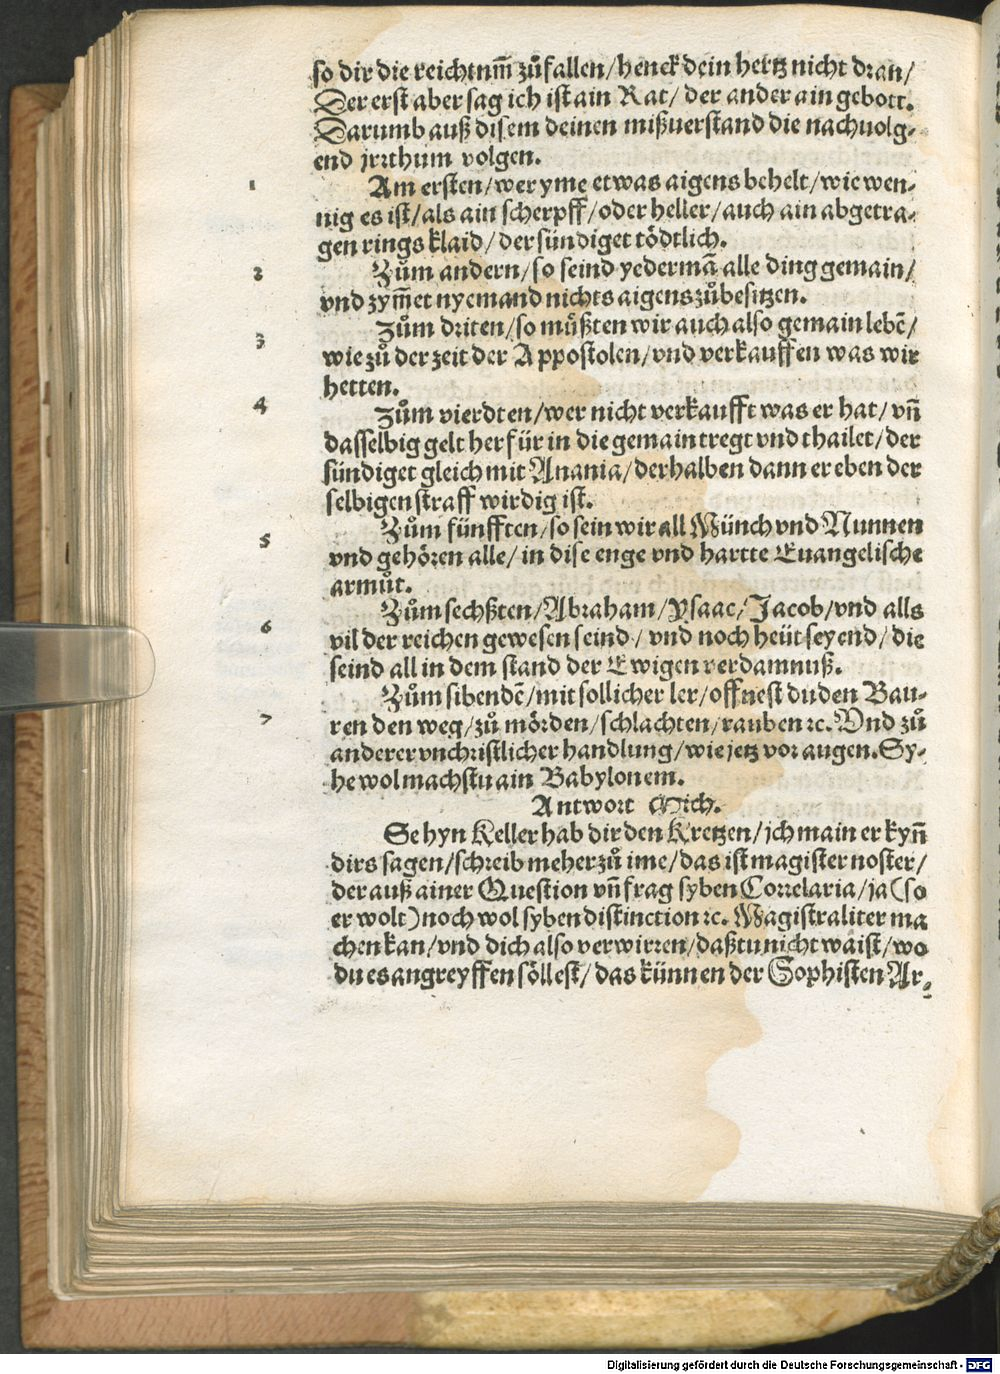 so dir die reichtum̃ zůfallen/ henck dein hertz nicht dran/
Der erst aber sag ich ist ain Rat/ der ander ain gebott.
Darumb auß disem deinen mißuerstand die nachuolg-
end jrrthum volgen.
1 Am ersten/ wer yme etwas aigens behelt/ wie wen-
nig es ist/ als ain scherpff/ oder heller/ auch ain abgetra-
gen rings klaid/ der sündiget tödtlich.
2 Zům andern/ so seind yedermã alle ding gemain/
vnd zym̃et nyemand nichts aigens zůbesitzen.
3 Zům driten/ so můßten wir auch also gemain lebẽ/
wie zů der zeit der Appostolen/ vnd verkauffen was wir
hetten.
4 Zům vierdten/ wer nicht verkaufft was er hat/ vñ
dasselbig gelt herfür in die gemain tregt vnd thailet/ der
sündiget gleich mit Anania/ derhalben dann er eben der
selbigen straff wirdig ist.
5 Zům fünfften/ so sein wir all Münch vnd Nunnen
vnd gehören alle/ in dise enge vnd hartte Euangelische
armůt.
6 Zům sechßten/ Abraham/ Ysaac/ Jacob/ vnd alls
vil der reichen gewesen seind/ vnd noch heüt seyend/ die
seind all in dem stand der Ewigen verdamnuß.
7 Zům sibendẽ/ mit sollicher ler/ offnest du den Bau-
ren den weg/ zů mörden/ schlachten/ rauben ꝛc. Vnd zů
anderer vnchristlicher handlung/ wie jetz vor augen. Sy-
he wol machstu ain Babylonem.
Antwort Mich.
Se hyn Keller hab dir den Kretzen/ jch main er kyñ
dirs sagen/ schreib meher zů ime/ das ist magister noster/
der auß ainer Question vñ frag syben Correlaria/ ja (so
er wolt) noch wol syben distinction ꝛc. Magistraliter ma
chen kan/ vnd dich also verwirren/ daßtu nicht waist/ wo
du es angreyffen söllest/ das künnen der Sophisten Ar-
Digitalisierung gefördert durch die Deutsche Forschungsgemeinschaft - DFG